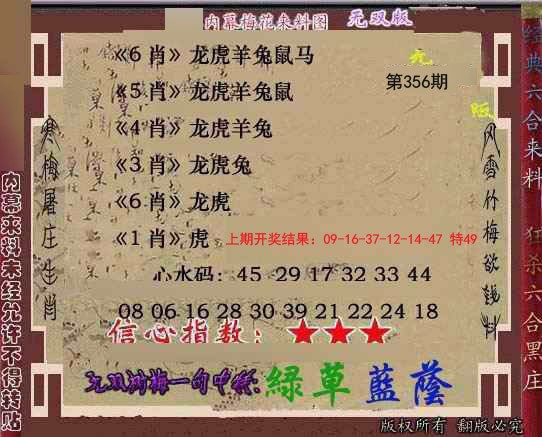 内幕梅花来料图 无双版
《6 肖》龙虎羊兔鼠马
无
第356期
《5 肖》龙虎羊兔鼠
版
《4 肖》龙虎羊兔
《3 肖》龙虎兔
《6 肖》龙虎
《1 肖》虎 上期开奖结果：09-16-37-12-14-47 特49
心水码：45 29 17 32 33 44
08 06 16 28 30 39 21 22 24 18
信心指数：★★★
緑草藍蔭
版权所有 翻版必究
寒梅屠庄生肖
风雪竹梅欲钱料
内幕来料未经允许不得转贴
经典六合来料 狂杀六合黑庄